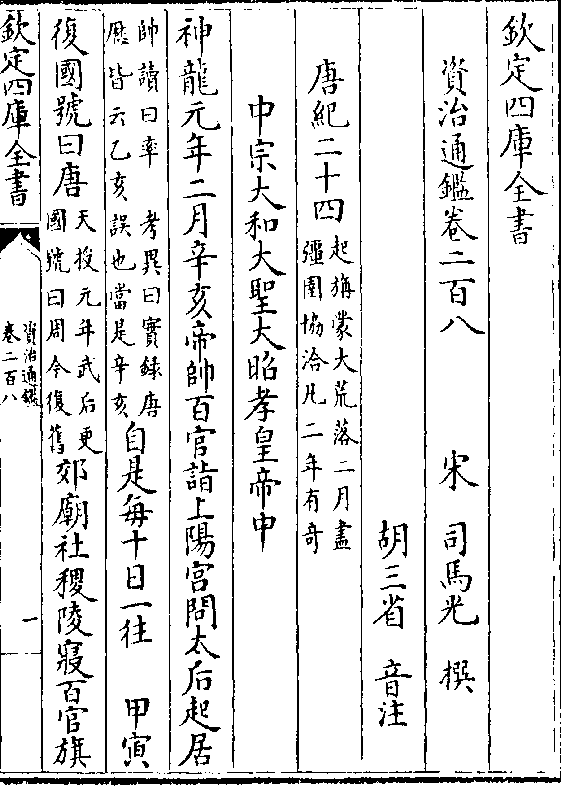 欽定四庫全書
資治通鑑卷二百八
宋 司馬光 撰
胡三省 音注
唐紀二十四起旃蒙大荒落二月盡
彊圉協洽凡二年有奇
中宗大和大聖大昭孝皇帝中
神龍元年二月辛亥帝帥百官詣上陽宮問太后起居
帥讀曰率 考異曰實録唐
歴皆云乙亥誤也當是辛亥
自是每十日一往 甲寅
復國號曰唐天授元年武后更
國號曰周今復舊
郊廟社稷陵寢百官旗
欽定四庫全書
資治通鑑
卷二百八
一